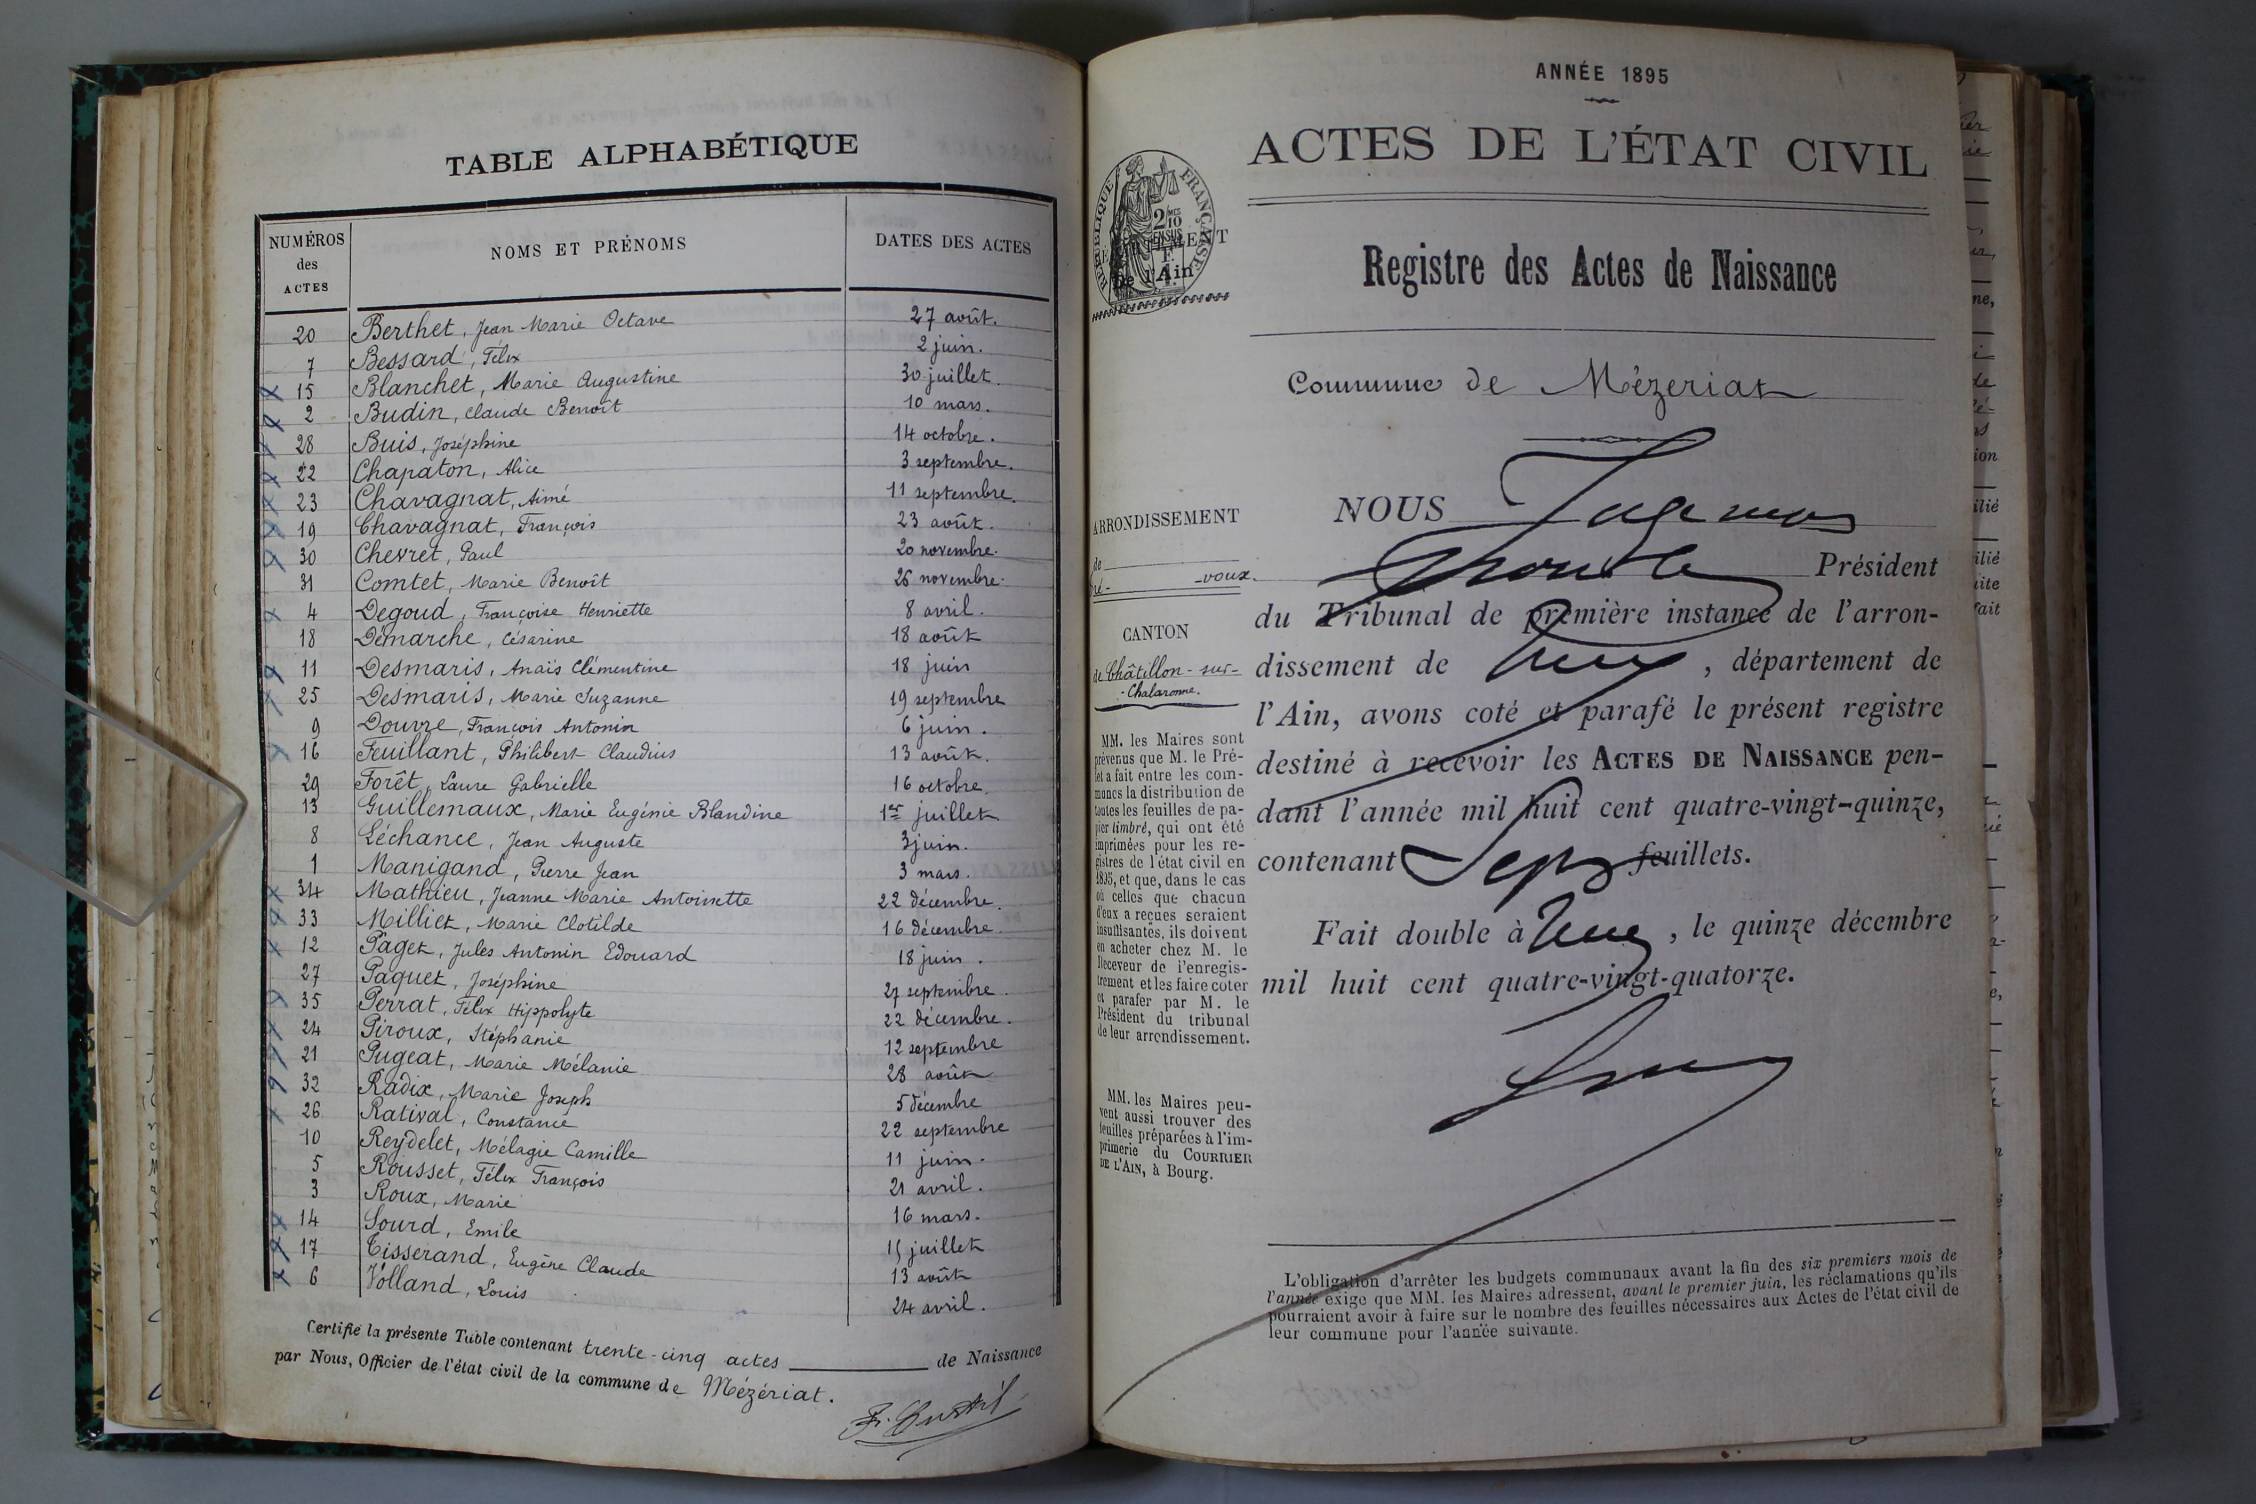 TABLE ALPHABÉTIQUE
NUMÉROS des ACTES NOMS ET PRÉNOMS DATES DES ACTES
20 Berthet, Jean Marie Octave 27 août.
7 Bessard, Félix 2 juin.
15 Blanchet, Marie Augustine 30 juillet.
2 Budin, Claude Benoît 10 mars.
28 Buis, Joséphine 14 octobre.
22 Chapaton, Alice 3 septembre.
23 Chavagnat, Aimé 11 septembre.
19 Chavagnat, François 23 août.
30 Chevret, Paul 20 novembre.
31 Comtet, Marie Benoît 26 novembre.
4 Degoud, Françoise Henriette 8 avril.
18 Démarche, Césarine 18 août
11 Desmaris, Anaïs Clémentine 18 juin
25 Desmaris, Marie Suzanne 19 septembre
9 Douvre, François Antonin 6 juin.
16 Feuillant, Philibert Claudius 13 août.
29 Forêt, Laure Gabrielle 16 octobre.
13 Guillemaux, Marie Eugénie Blandine 1er juillet
8 Léchance, Jean Auguste 3 juin.
1 Manigand, Pierre Jean 3 mars.
34 Mathieu, Jeanne Marie Antoinette 22 décembre.
33 Milliet, Marie Clotilde 16 décembre.
12 Paget, Jules Antonin Edouard 18 juin.
27 Paquet, Joséphine 27 septembre.
35 Perrat, Félix Hippolyte 22 décembre.
24 Piroux, Stéphanie 12 septembre
21 Pugeat, Marie Mélanie 28 août
32 Radix, Marie Joseph 5 décembre
26 Ratival, Constance 22 septembre
10 Reydelet, Mélagie Camille 11 juin.
5 Rousset, Félix François 21 avril.
3 Roux, Marie 16 mars.
14 Sourd, Emile 15 juillet
17 Tisserand, Eugène Claude 13 août
6 Volland, Louis 24 avril.
Certifié la présente Table contenant trente-cinq actes de Naissance
par Nous, Officier de l'état civil de la commune de Mézériat.
ANNÉE 1895
ACTES DE L'ÉTAT CIVIL
RÉPUBLIQUE FRANÇAISE
2/10 EN SUS
de l'Ain
Registre des Actes de Naissance
Commune de Mézeriat
ARRONDISSEMENT
de
voux.
CANTON
de Châtillon-sur-
-Chalaronne.
MM. les Maires sont
prévenus que M. le Pré-
fet a fait entre les com-
munes la distribution de
toutes les feuilles de pa-
pier timbré, qui ont été
imprimées pour les re-
gistres de l'état civil en
1895, et que, dans le cas
où celles que chacun
d'eux a reçues seraient
insuffisantes, ils doivent
en acheter chez M. le
Receveur de l'enregis-
trement et les faire coter
et parafer par M. le
Président du tribunal
de leur arrondissement.
MM. les Maires peu-
vent aussi trouver des
feuilles préparées à l'im-
primerie du COURRIER
DE L'AIN, à Bourg.
NOUS
Président
du Tribunal de première instance de l'arron-
dissement de , département de
l'Ain, avons coté et parafé le présent registre
destiné à recevoir les ACTES DE NAISSANCE pen-
dant l'année mil huit cent quatre-vingt-quinze,
contenant Sept feuillets.
Fait double à , le quinze décembre
mil huit cent quatre-vingt-quatorze.
L'obligation d'arrêter les budgets communaux avant la fin des six premiers mois de
l'année exige que MM. les Maires adressent, avant le premier juin, les réclamations qu'ils
pourraient avoir à faire sur le nombre des feuilles nécessaires aux Actes de l'état civil de
leur commune pour l'année suivante.